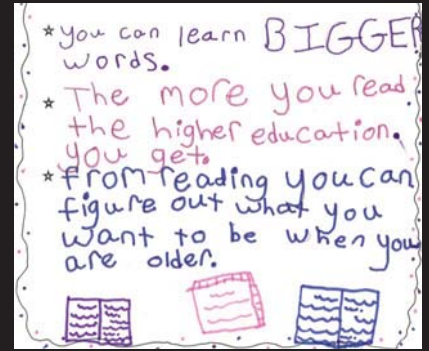 * you can learn BIGGER
words.
* The more you read
the higher education.
you get.
* from reading you can
figure out what you
want to be when you
are older.